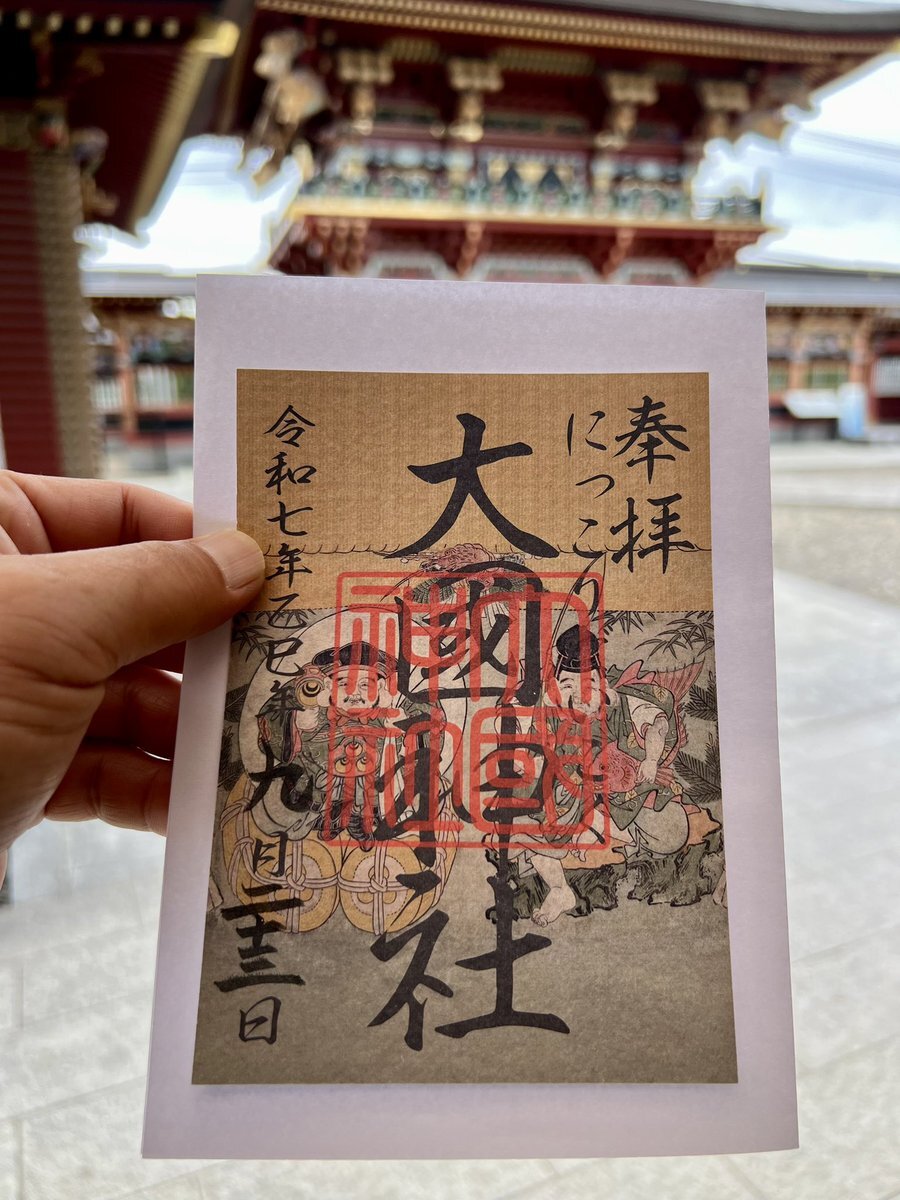 奉拝
にっこり
大國神社
大國
神社
令和七年乙巳年九月二十三日